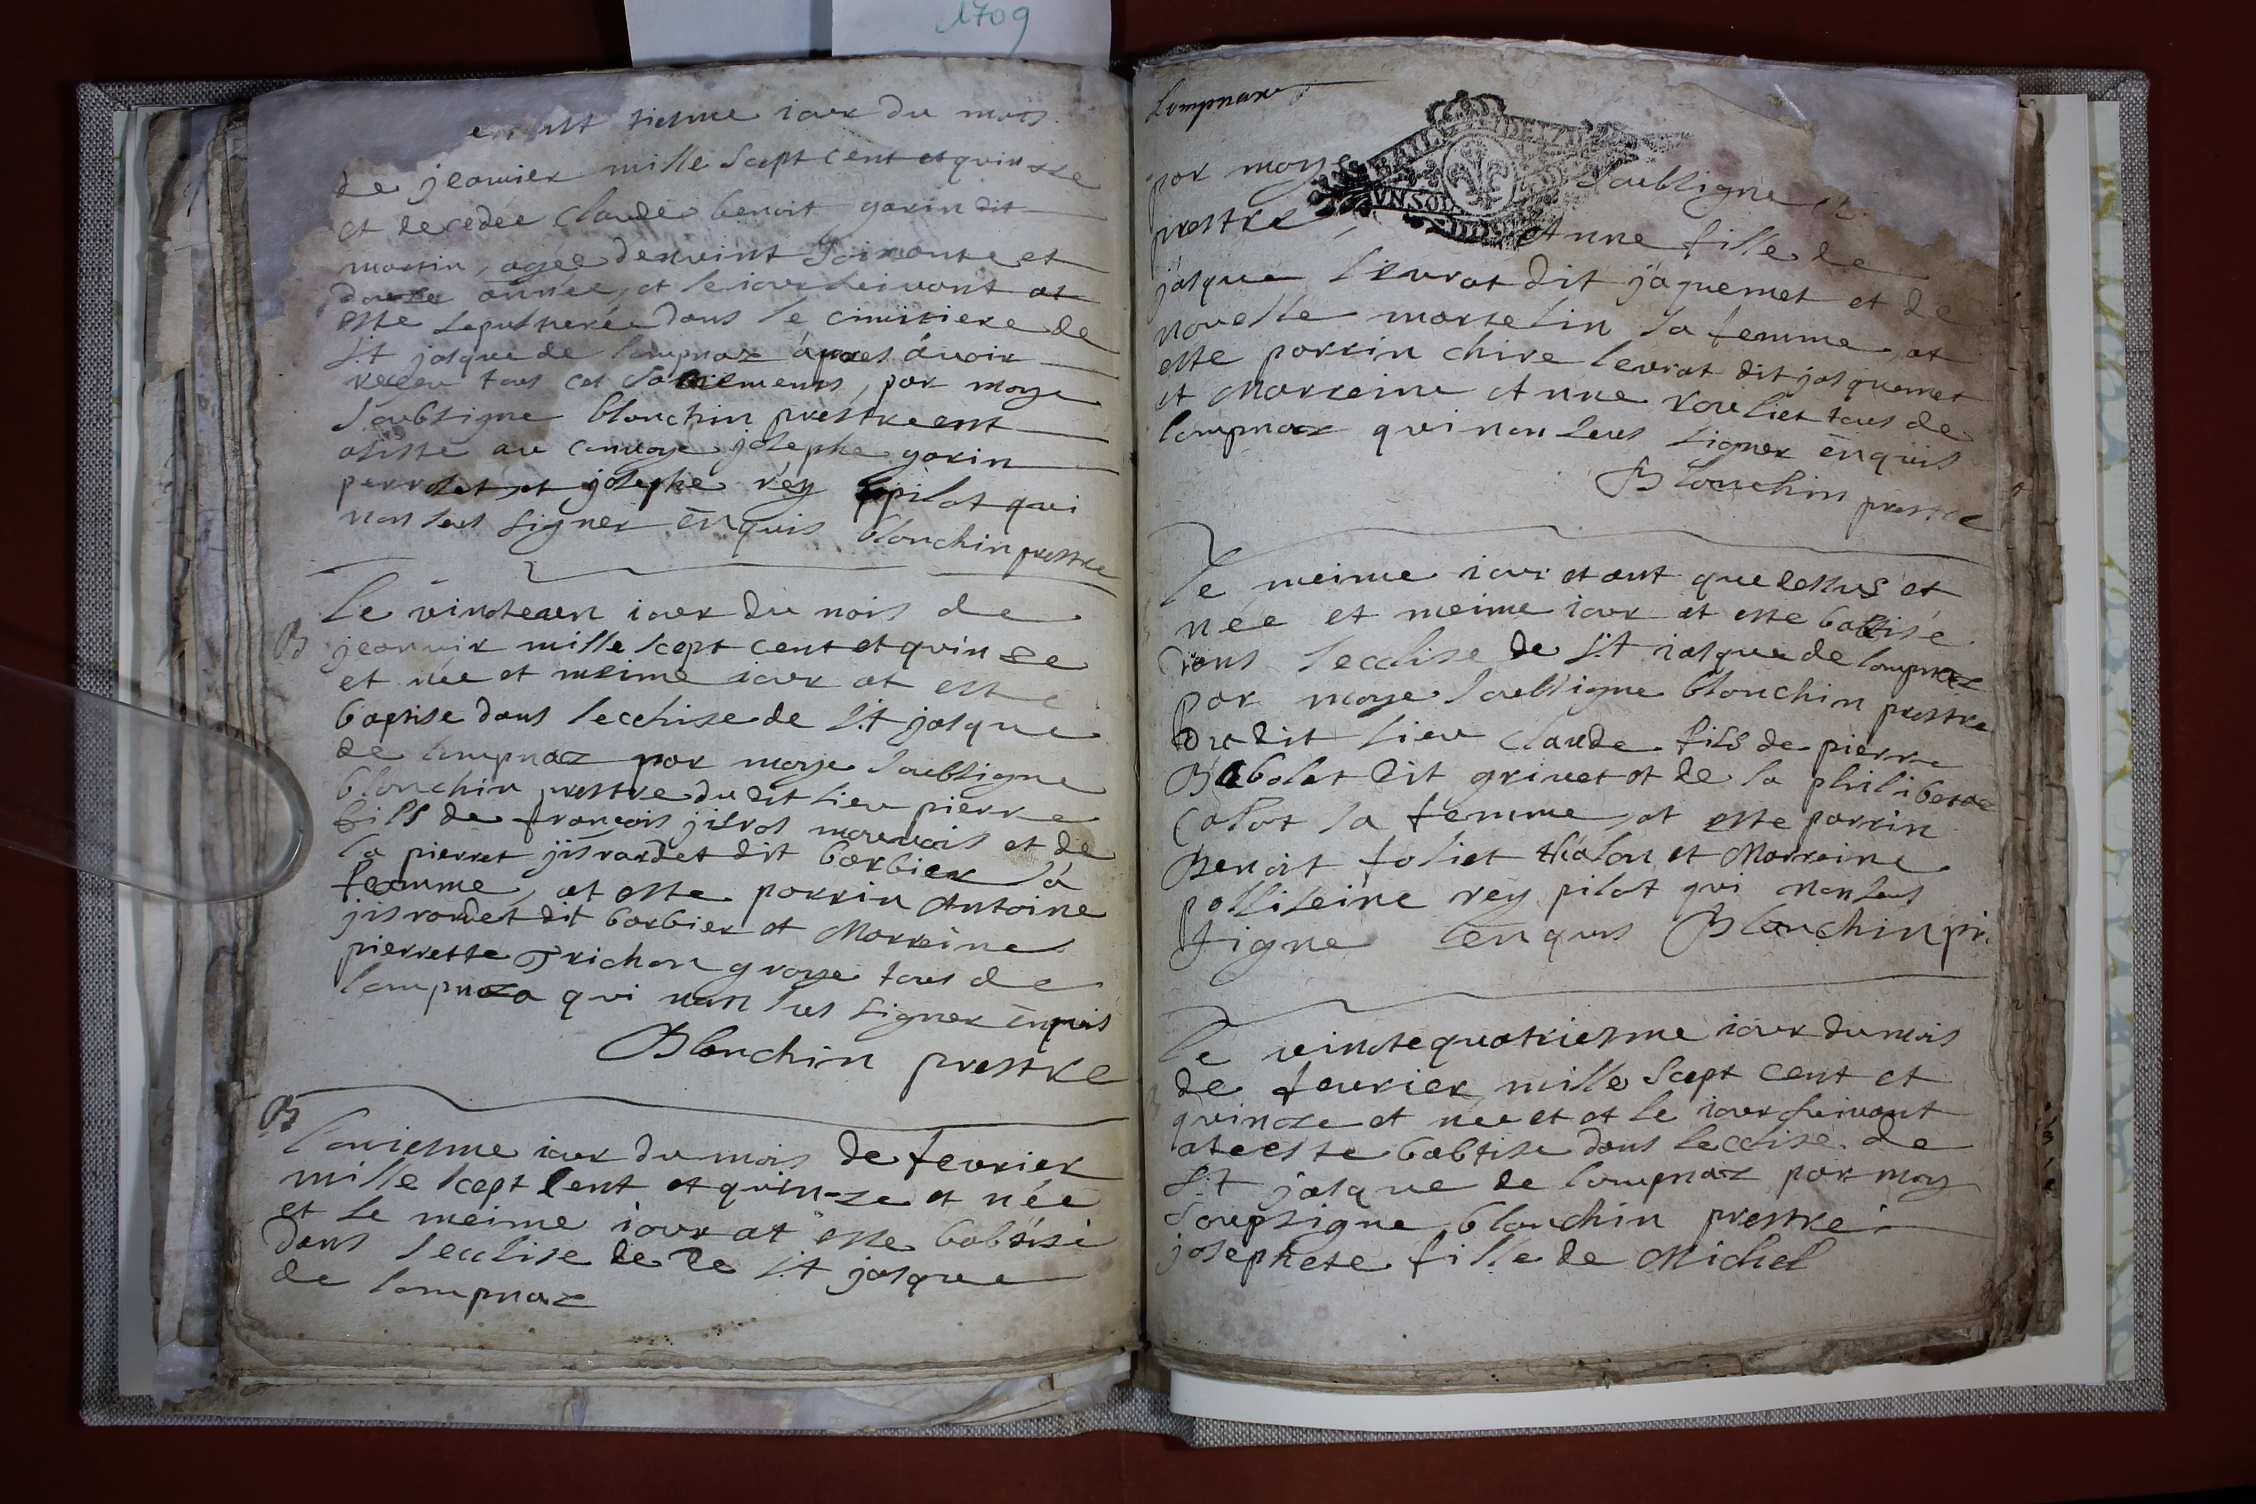 1709
tiesme iour du mois
de jeanvier mille sept cent et quinsze
et decedée claude benoit garin dit
martin, agée
douze année, et le iour suivant at
este sepulturée dans le cimitiere de
S:t jasque de lompnaz apres avoir
receu tous cet sacrements, par moye
soubsigne blanchin prestre ont
asiste au convoye josephe garin
perrolet et josephe rey pilot qui
non seus signer enquis blanchin prestre
B
le vinteun iour du mois de
jeanvier mille scept cent et quinze
et née et meime iour at este
baptise dans lecclise de S:t jasque
de lompnaz par moye soubsigne
blanchin prestre dudit lieu pierre
fils de françois mauvais et de
la pierret dit barbier sa
feamme, at este parrin Antoine
dit barbier et Marreine
pierrette Trichon groze tous de
lompnaz qui non seus signer enquis
Blanchin prestre
B
lonziesme iour du mois de fevrier
mille scept cent et quin-ze et née
et le meime iour at este babtisé
dans lecclise de de S:t jasque
de lompnaz
Lompnaz
par moye soubsigne
UN SOL
prestre Anne fille de
jasque levrat dit jaquemet et de
novelle marselin sa femme, at
este parrin chire levrat dit jasquemet
et Marreine Anne rouliet tous de
lompnaz qui non seus signer enquis
Blanchin prestre
le meime iour et ant que dessus et
née et meime iour at este babtisé
dans lecclise de S:t iasque de lompnaz
par moye soubsigne blanchin prestre
dudit lieu claude fils de pierre
Babolat dit grivet et de la philiberde
Calat sa femme, at este parrin
Benoit foliet thalon et Marreine
rey pilot qui non seus
signe enquis Blanchin pr.
le vintequatriesme iour du mois
de fevrier mille scept cent et
quinze et née et et le iour suivant
at este babtise dans lecclise de
S:t jasque de lompnaz par moy
soupsigne blanchin prestre
josephete fille de Michel